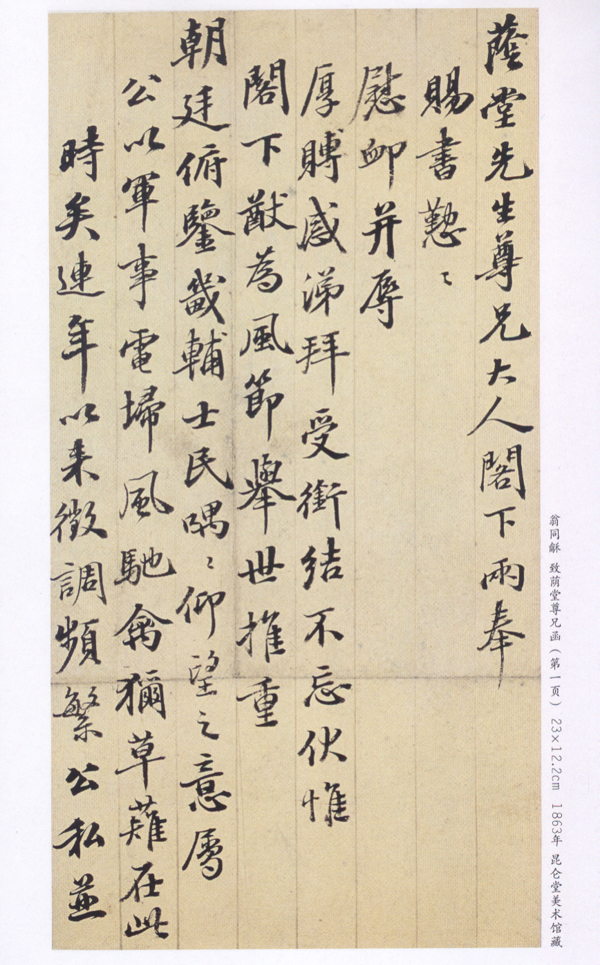 蔭堂先生尊兄大人閣下兩奉
賜書懃〻
慰卹并辱
厚賻感涕拜受銜結不忘伏惟
閣下猷為風節舉世推重
朝廷俯鑒畿輔士民喁〻仰望之意屬
公以軍事電掃風馳禽獮草薙在此
時矣連年以来徵調頻繁公私並
翁同龢 致荫堂尊兄函（第一页） 23×12.2cm 1863年 昆仑堂美术馆藏